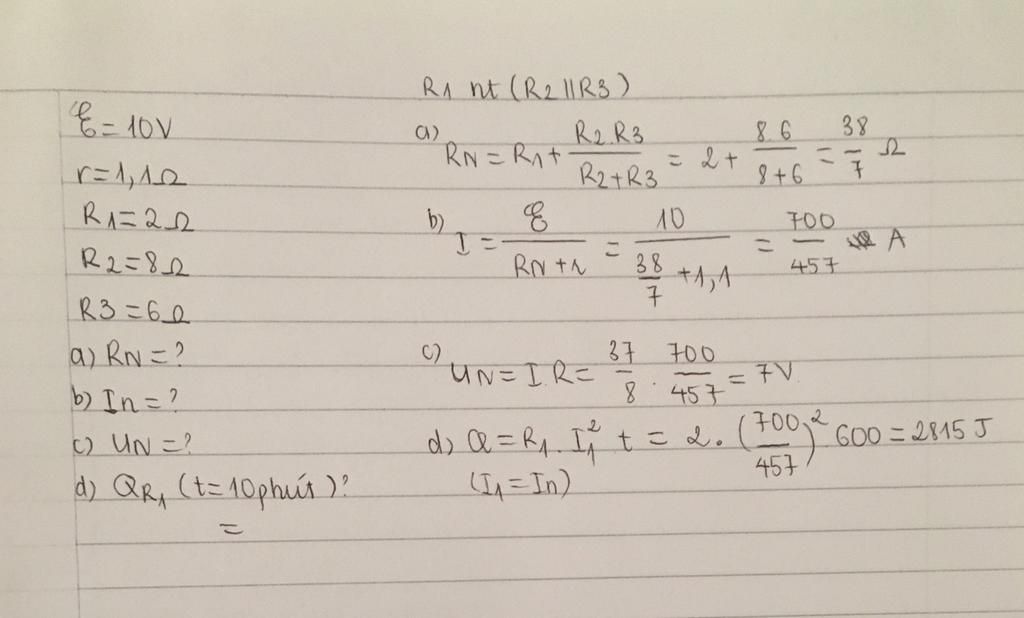 R1 nt (R2 || R3)
ℰ = 10V
r = 1,1Ω
R1 = 2Ω
R2 = 8Ω
R3 = 6Ω
a) RN = ?
b) In = ?
c) UN = ?
d) QR1 (t = 10 phút)?
=
a) RN = R1 + R2.R3 / R2+R3 = 2 + 8.6 / 8+6 = 38/7 Ω
b) I = ℰ / RN + r = 10 / 38/7 + 1,1 = 700/457 A
c) UN = I.R = 37/8 . 700/457 = 7V
d) Q = R1 . I1² t = 2. (700/457)² 600 = 2815 J
(I1 = In)